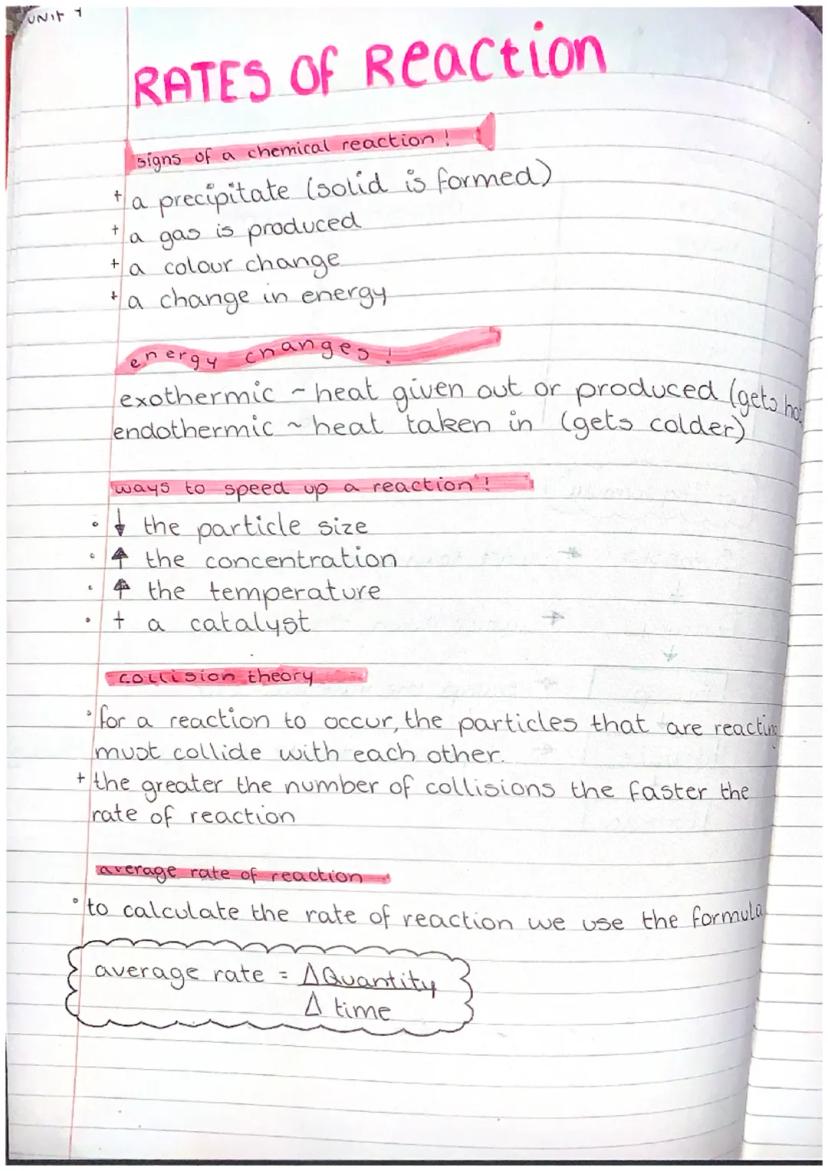 UNIT 1
RATES OF Reaction
signs of a chemical reaction!
+ a precipitate (solid is formed)
+ a gas is produced
+ a colour change
+ a change in energy
energy changes!
exothermic ~ heat given out or produced (gets hot
endothermic ~ heat taken in (gets colder)
ways to speed up a reaction!
• ↓ the particle size
• ↑ the concentration
• ↑ the temperature
• + a catalyst
collision theory
• for a reaction to occur, the particles that are reacting
must collide with each other.
+ the greater the number of collisions the faster the
rate of reaction
average rate of reaction
• to calculate the rate of reaction we use the formula
average rate = ΔQuantity
Δ time